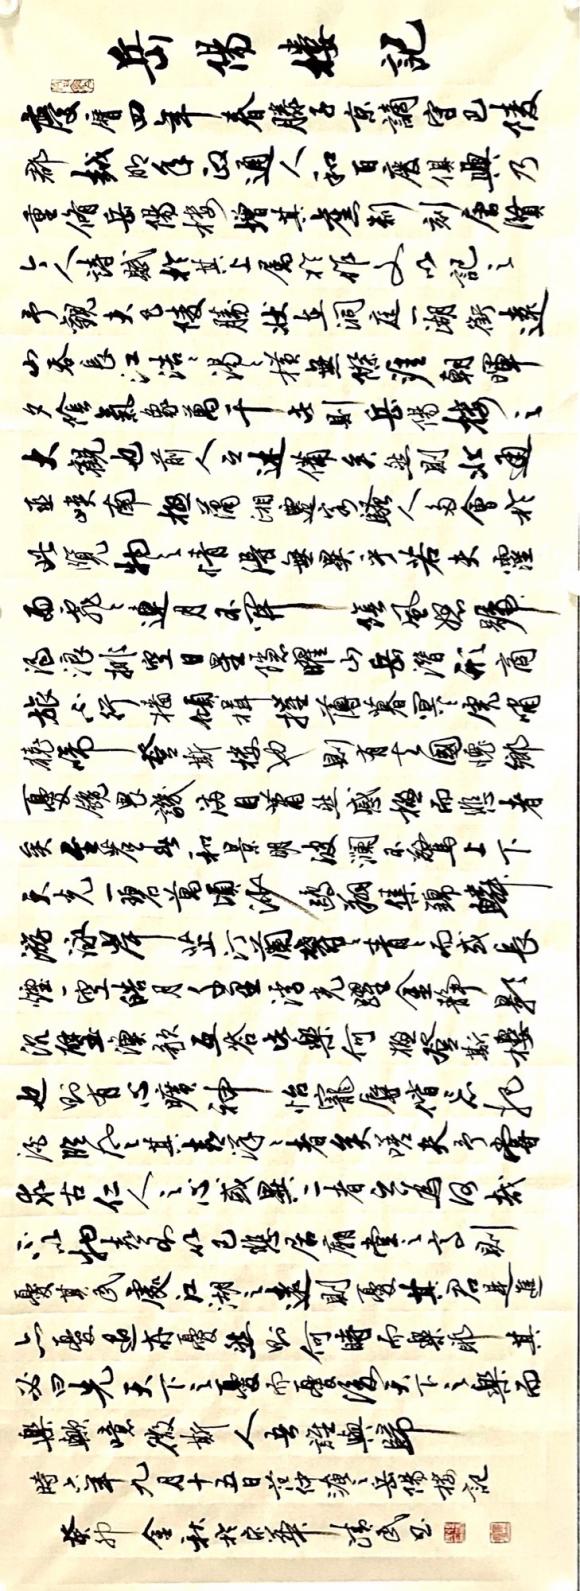 岳陽樓記
慶曆四年春滕子京謫守巴陵
郡越明年政通人和百廢俱興乃
重脩岳陽樓增其舊制刻唐賢
今人詩賦於其上屬於作文以記之
予觀夫巴陵勝狀在洞庭一湖銜遠
山吞長江浩浩湯湯橫無際涯朝暉
夕陰氣象萬千此則岳陽樓之
大觀也前人之述備矣然則北通
巫峽南極瀟湘遷客騷人多會於
此覽物之情得無異乎若夫霪
雨霏霏連月不開陰風怒號
濁浪排空日星隱曜山岳潛形商
旅不行檣傾楫摧薄暮冥冥虎嘯
猿啼登斯樓也則有去國懷鄉
憂讒畏譏滿目蕭然感極而悲者
矣至若春和景明波瀾不驚上下
天光一碧萬頃沙鷗翔集錦鱗
游泳岸芷汀蘭郁郁青青而或長
煙一空皓月千里浮光躍金靜影
沉璧漁歌互答此樂何極登斯樓
也則有心曠神怡寵辱偕忘把
酒臨風其喜洋洋者矣嗟夫予嘗
求古仁人之心或異二者之為何哉
不以物喜不以己悲居廟堂之高則
憂其民處江湖之遠則憂其君是進
亦憂退亦憂然則何時而樂耶其
必曰先天下之憂而憂後天下之樂而
樂歟噫微斯人吾誰與歸
時六年九月十五日范仲淹之岳陽樓記
癸卯金秋於京華清民書